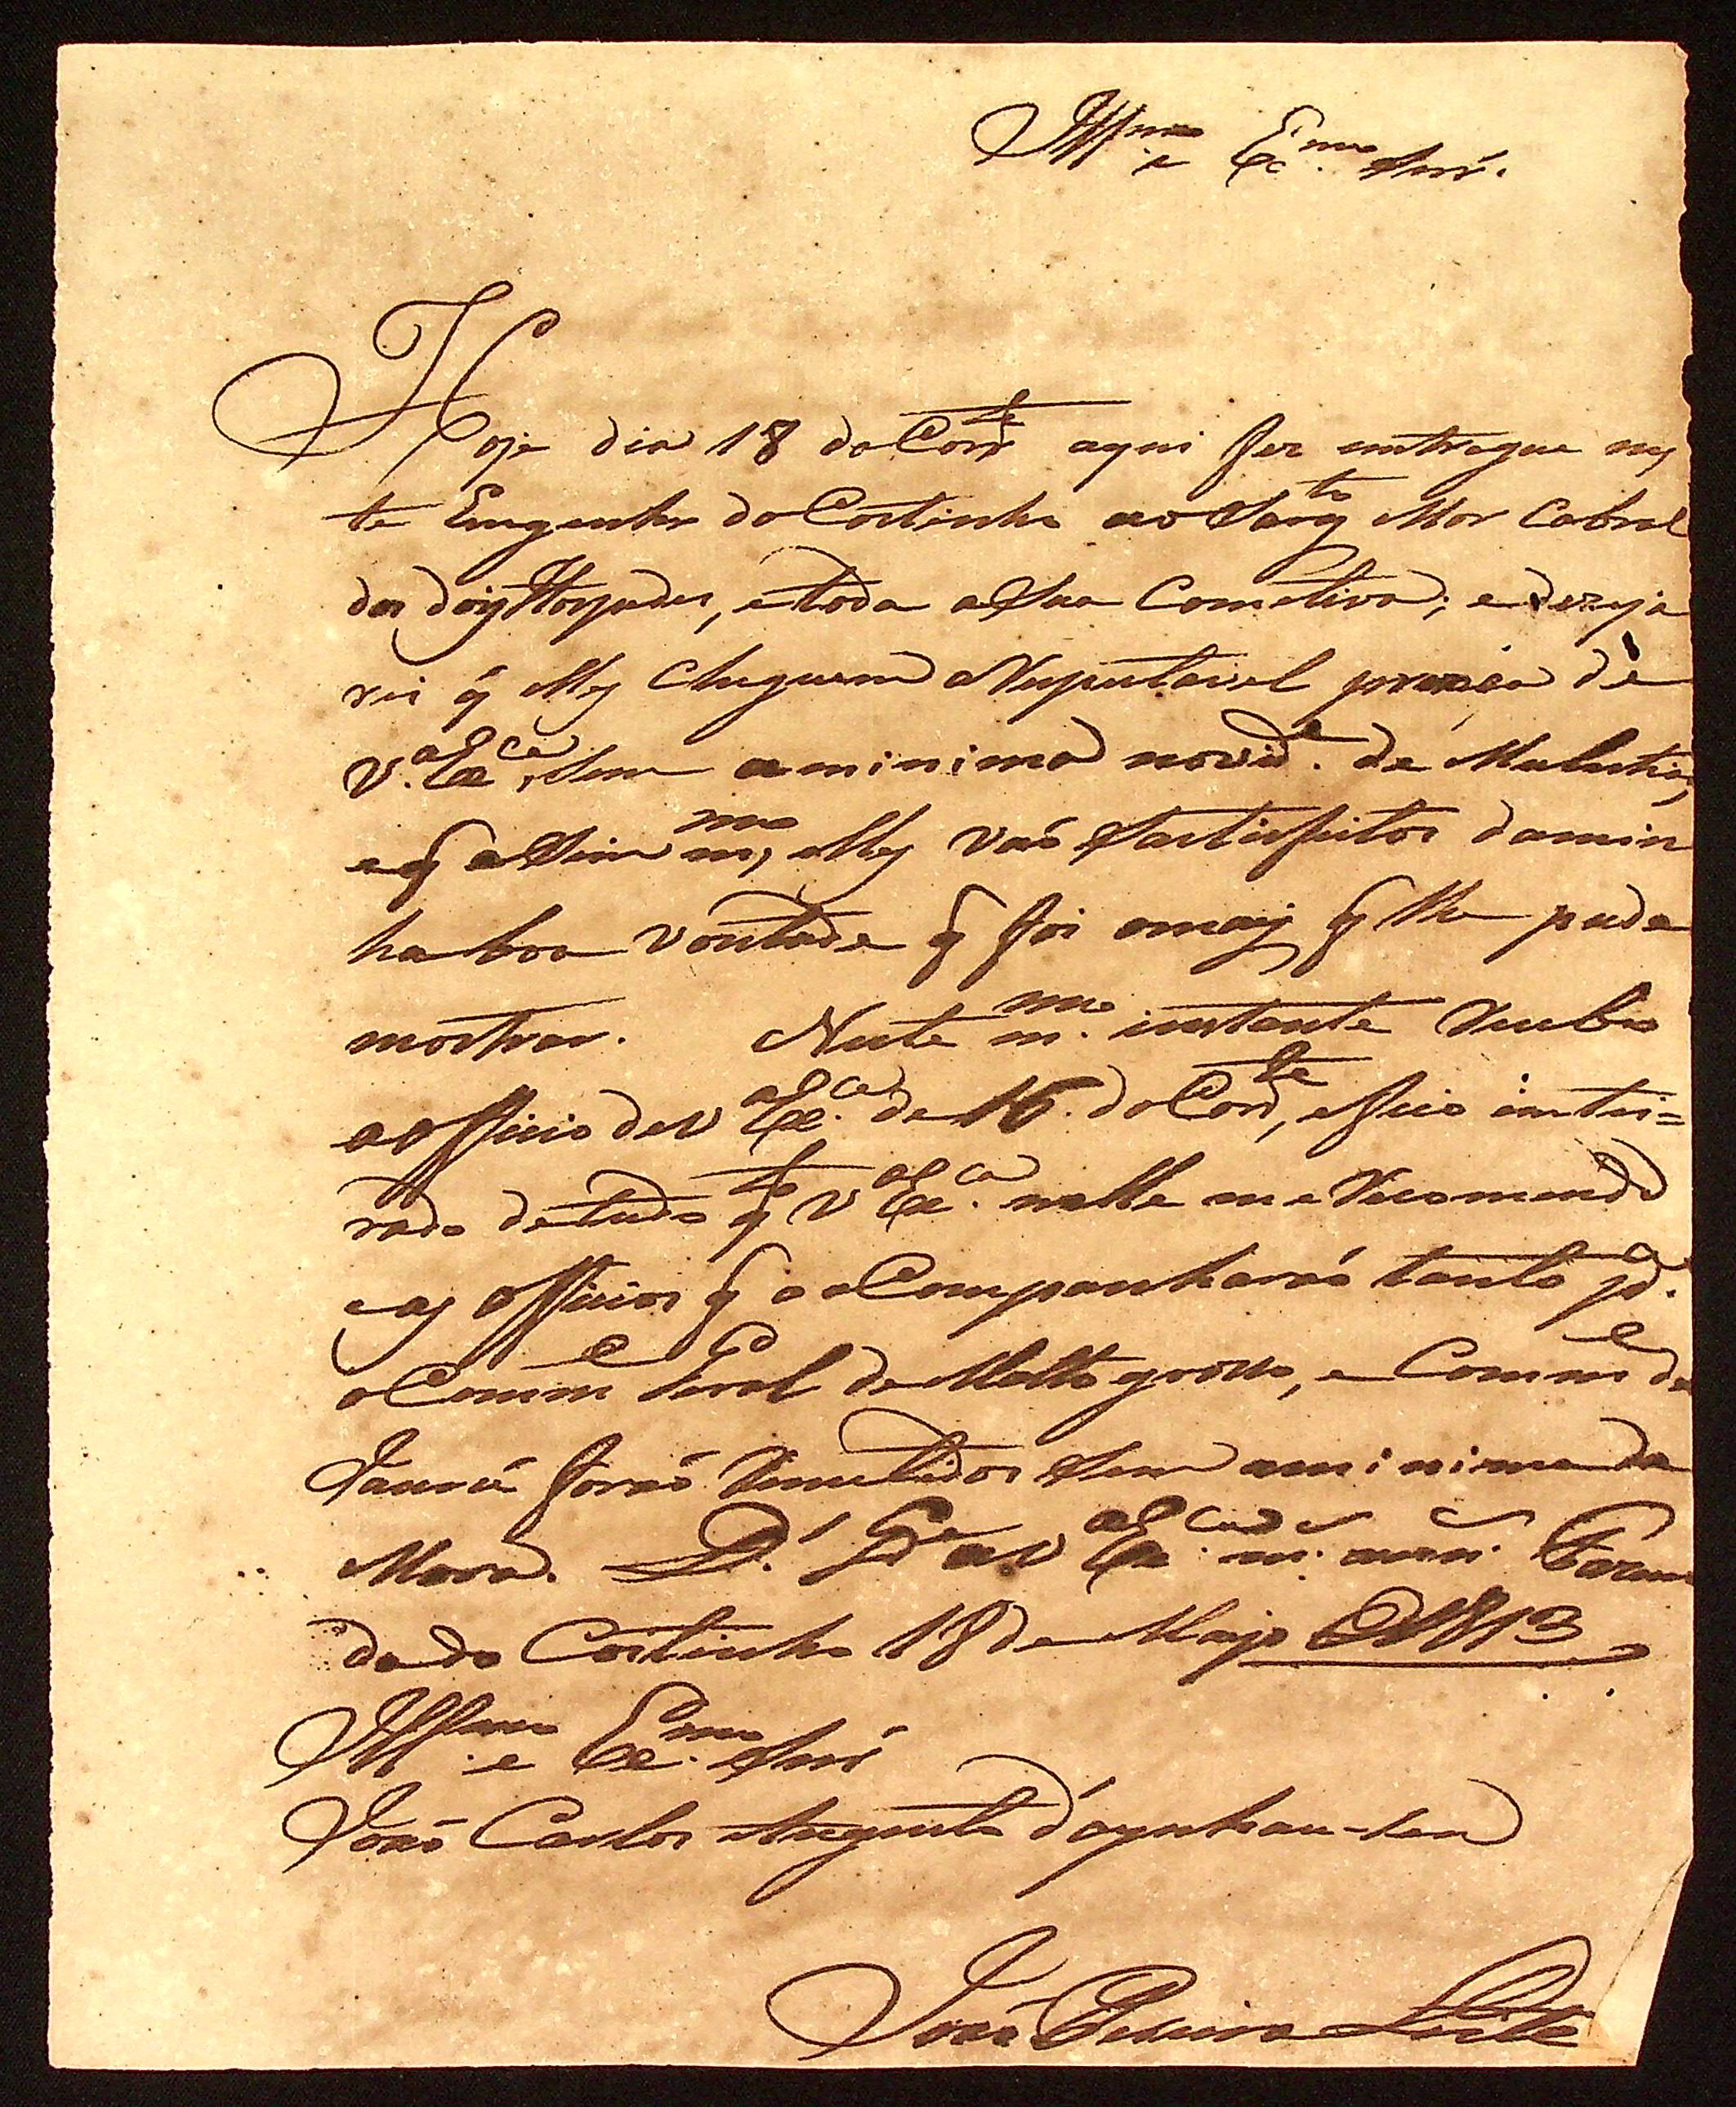 Illmo e Exmo Snr.
Hoje dia 18 do Corrte aqui fez entregue nes
te Engenho do Cortinha ao Sargto Mor Cabral
dos dois Hospedes, e toda a Sua Cometiva; e dezeja
rei q elles cheguem a Respeitavel prezença de
V.a Exca, Sem a minima novide. de Molestia,
e q aSim mmo, elles vaõ Sastisfeitos damin
ha boa vontade q foi omais q lhe pude
mostrar. Neste mmo. instante Recebo
o officio de V.a Exca. de 16. do Corrte, e fico intei=
rado de tudo qto V.a Exca. nelle me Recomenda
e os officios q o aCompanharaõ tanto pa.
o Comme Geral de Matto grosso, e Comme do
Jaurú foraõ Remetidos Sem aminima de
Mora. Ds. Gde a V.a Exca. ms. ans. Fazen
da do Cortinha 18 de Majo de 1813
Illmo. e Exmo. Snr
Joaõ Carlos Augusto d'Oeynhau-sen
Joaõ Pereira Leite